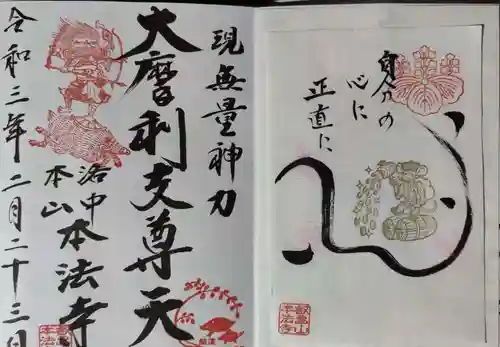 自分の
心に
正直に
叡昌山
本法寺
現無量神力
大摩利支尊天
洛中
本山
本法寺
令和三年二月二十三日
叡昌山
本法寺
開運